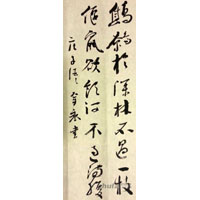 鷦鷯於深林不過一枝
偃鼠欲飲河不過滿腹
莊子語